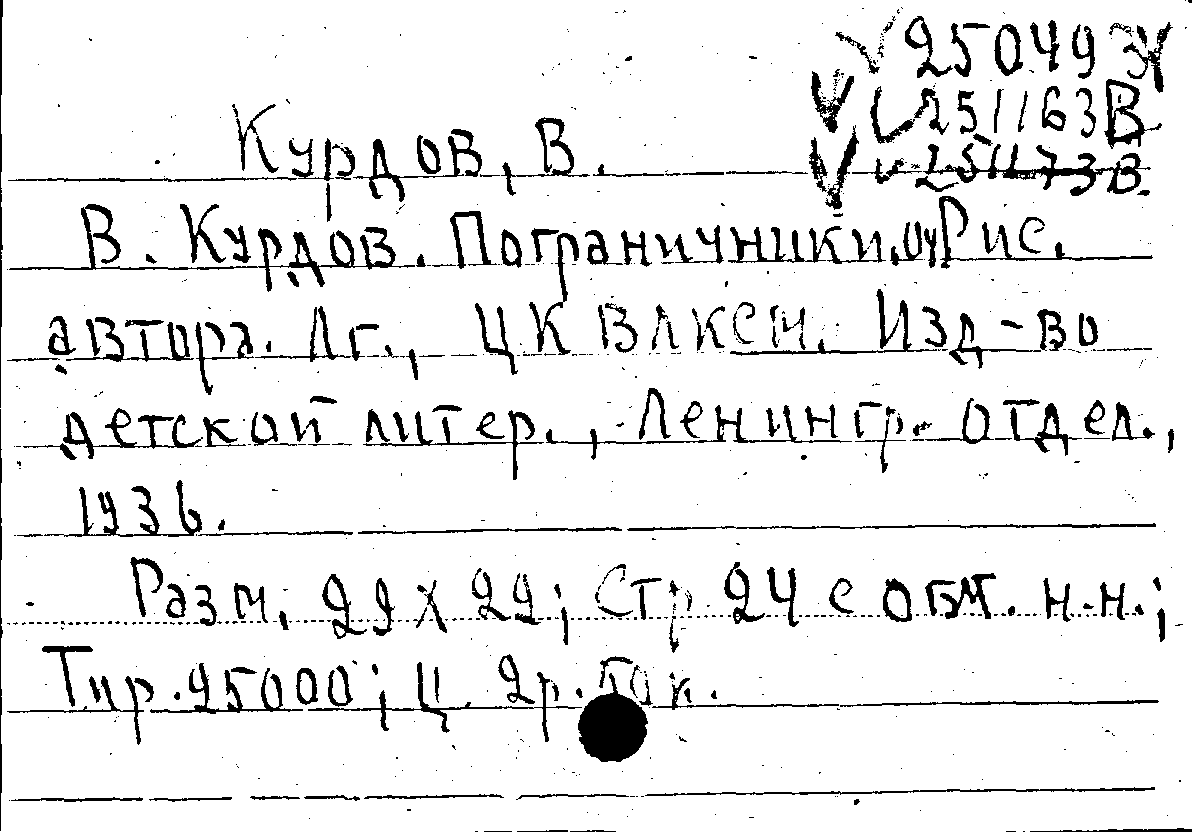 25049
251163В
251173В.
Курдов, В.
В. Курдов. Пограничники. Рис.
автора. Лг., ЦК ВЛКСМ. Изд-во
детской литер., Ленингр. отдел.,
1936.
Разм. 29 х 22; Стр 24 с обл. н.н.;
Тир. 25000; Ц. 2р. 50 к.